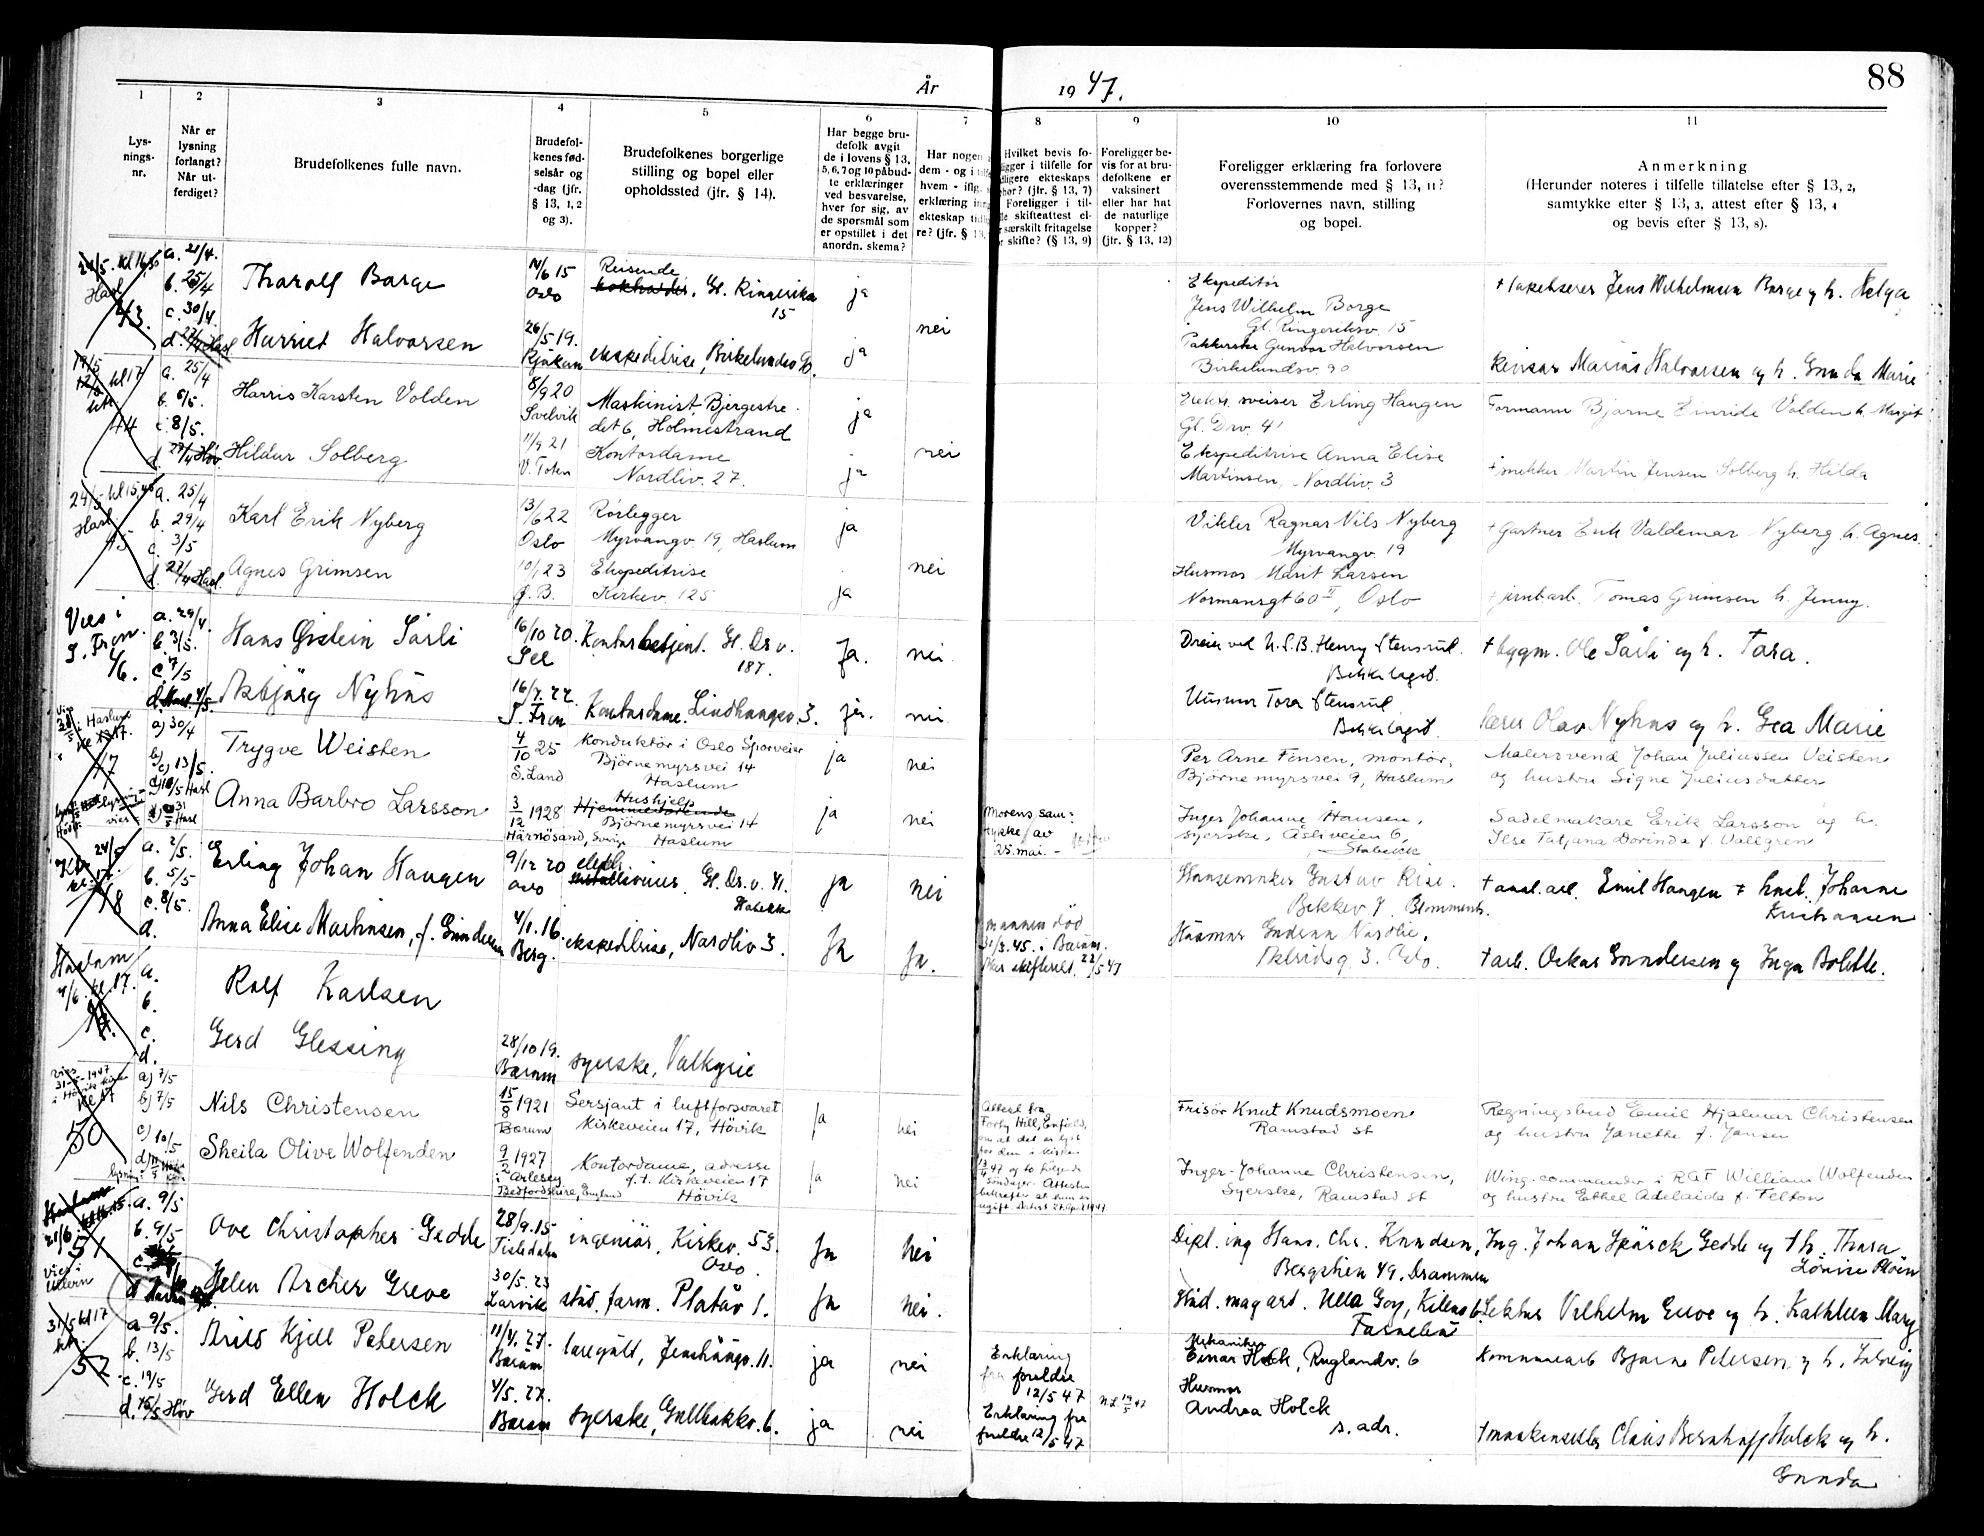 88
År 1947.
1 2 3 4 5 6 7 8 9 10 11
Lys-
nings-
nr.
Når er
lysning
forlangt?
Når ut-
ferdiget?
Brudefolkenes fulle navn.
Brudefol-
kenes fød-
selsår og
-dag (jfr.
§ 13, 1, 2
og 3).
Brudefolkenes borgerlige
stilling og bopel eller
opholdssted (jfr. § 14).
Har begge bru-
defolk avgit
de i lovens § 13,
5, 6, 7 og 10 påbud-
te erklæringer
ved besvarelse,
hver for sig, av
de spørsmål som
er opstillet i det
anordn. skema?
Har nogen
dem - og i
hvem - iflg.
erklæring
ekteskap
re? (jfr. § 13,
Hvilket bevis fo-
ligger i tilfelle for
ekteskaps
(jfr. § 13, 7)
Foreligger i til-
skifteattest el-
særskilt fritagelse
skifte? (§ 13, 9)
Foreligger be-
vis for at bru-
defolkene er
vaksinert
eller har hat
de naturlige
kopper?
(jfr. § 13, 12)
Foreligger erklæring fra forlovere
overensstemmende med § 13, 11?
Forlovernes navn, stilling
og bopel.
Anmerkning
(Herunder noteres i tilfelle tillatelse efter § 13, 2,
samtykke efter § 13, 3, attest efter § 13, 4
og bevis efter § 13, 8).
43.
a. 21/4.
b. 25/4
c. 30/4.
Thorolf Borge
14/6 15
Oslo
Reisende
Gl. Ringeriksv
15
ja
Ekspeditør
Jens Wilhelm Borge
Gl. Ringeriksv. 15
Jens Wilhelmsen Borge og h. Helga
Harriet Halvorsen
26/5 19.
Rjukan
ekspeditrise, Birkelundsv
ja
nei
Pakkerske Gunvor Halvorsen
Birkelundsv 90
Marius Halvorsen og h. Gunda Marie
44
a. 25/4
b. 6/5.
c. 8/5.
Harris Karsten Volden
8/9 20
Svelvik
Maskinist, Bjergestre-
det 6, Holmestrand
ja
sveiser Erling Haugen
Gl. Drv. 41
Formann Bjarne Einride Volden h. Margit
Hildur Solberg
11/9 21
V. Toten
Kontordame
Nordliv. 27.
ja
nei
Ekspeditrise Anna Elise
Martinsen, Nordliv. 3
† snekker Martin Jensen Solberg h. Hilda
45
a. 25/4
b. 29/4
c. 3/5
Karl Erik Nyberg
3/6 22
Oslo
Rørlegger
Myrvangv. 19, Haslum
ja
Vikler Ragnar Nils Nyberg
Myrvangv. 19
† Gartner Erik Valdemar Nyberg h. Agnes.
Agnes Grimsen
10/1 23
Ø. B.
Ekspeditrise
Kirkev. 125
ja
nei
Husmor Marit Larsen
Normansgt 60 II, Oslo
† jernbarb. Tomas Grimsen h. Jenny.
Vies i
S. Fron.
46.
a. 29/4.
b. 3/5.
c. 7/5
Hans Øistein Sårli
16/10 20.
Sel
Kontorbetjent. Gl. Dr v.
187.
Ja.
nei.
Dreier ved N.S.B. Henry Stensrud.
Bekkelaget.
† bygm. Ole Sårli og h. Tora.
Asbjørg Nyhus
16/7. 22.
S. Fron
Kontordame. Lindhaugsv. 3.
ja.
nei
Husmor Tora Stensrud
Bekkelaget.
lærer Olav Nyhus og h. Gea Marie
47
a) 30/4
b)
c) 13/5.
Trygve Weisten
4/10 25
S. Land
Konduktør i Oslo Sporveier
Bjørnemyrsvei 14
Haslum
ja
nei
Per Arne Finsen, montør,
Bjørnemyrsvei 9, Haslum
Malersvend Johan Juliussen Veisten
og hustru Signe Juliusdatter
Anna Barbro Larsson
3/12 1928
Härnösand, Sverige
Hushjelp
Bjørnemyrsvei 14
Haslum
ja
nei
Morens sam-
tykke av
25. mai. -
Inger Johanne Hansen,
syerske, Åsliveien 6,
Stabekk
Sadelmakare Erik Larsson og h.
Ilse Tatjana Dorinda f. Vallgren
48
a. 2/5.
b. 5/5
c. 8/5.
d.
Erling Johan Haugen
9/12 20
Oslo
elektr.
Gl. Dr. v. 41.
Stabekk
ja
nei
Gustav Rise.
Bekkev 7. Blommenh.
Emil Haugen & hust. Johanne
Kristiansen
Anna Elise Martinsen, f. Gundersen
4/1. 16.
Berg.
ekspeditrise, Nordliv 3.
Ja
Ja.
mannen død
31/3. 45. i Bærum.
22/5 47
Husmor Gudrun Nordlie,
Astridsg. 3. Oslo.
† arb. Oskar Gundersen og Inga Bolette.
Haslum
7/6. kl. 17.
49.
a.
b.
c.
d.
Rolf Karlsen
Gerd Glessing
28/10 19.
Bærum
syerske, Valkyrie
Vies
31-5-1947
i Høvik kirke
kl 17
50
a) 7/5
b) 7/5
c) 10/5
Nils Christensen
15/8 1921
Bærum
Sersjant i luftforsvaret
Kirkeveien 17, Høvik
Ja
nei
Attest fra
Forty Hill, Enfield,
om at det er lyst
for dem i kirken
13/4 47 og to følgende
Søndager. Attesten
bekrefter at hun er
ugift. Datert 27. April 1947.
Frisør Knut Knudsmoen
Ramstad st
Regningsbud Emil Hjalmar Christensen
og hustru Janette f. Jansen
Sheila Olive Wolfenden
9/2 1927
i Arlesey
Bedfordshire, England
Kontordame, adresse
f.t. Kirkeveien 17
Høvik
Ja
nei
Inger-Johanne Christensen,
Syerske, Ramstad st
Wing-commander i RAF William Wolfenden
og hustru Ethel Adelaida f. Felton
21/6
51
Vies i
Ullern
a. 9/5
b. 9/5
Ove Christopher Gedde
28/9. 15
Tistedalen
ingeniør, Kirkev. 53.
Oslo.
Ja
Nei
Dipl. ing Hans. Chr. Knudsen,
Bergstien 49, Drammen
Ing. Johan Spärck Gedde og † h. Thora
Louise Pløen
Helen Archer Greve
30/5. 23
Larvik
stud. farm. Platåv 1.
Ja
nei.
Stud. mag art. Ulla Goy, Kilens 6.
Fornebu
Lektor Vilhelm Greve og h. Kathleen Mary
31/5 kl 17
52
a 9/5.
b. 13/5
c. 19/5
d. 15/5 Høv
Arild Kjell Petersen
11/4. 27.
Bærum
Jenshaugv. 11.
ja
nei
Erklæring
fra foreldre
12/5 47
Mekaniker
Einar Holck, Ruglandv. 6
Kommunearb Bjarne Petersen og h. Solveig
Gerd Ellen Holck
4/5. 27.
Bærum
syerske, Gullbakkv. 6.
ja
nei
Erklæring fra
foreldre 12/5 47
19/5 47
Husmor
Andrea Holck
s. adr.
Claus Bernhoff Holck og h.
Gunda